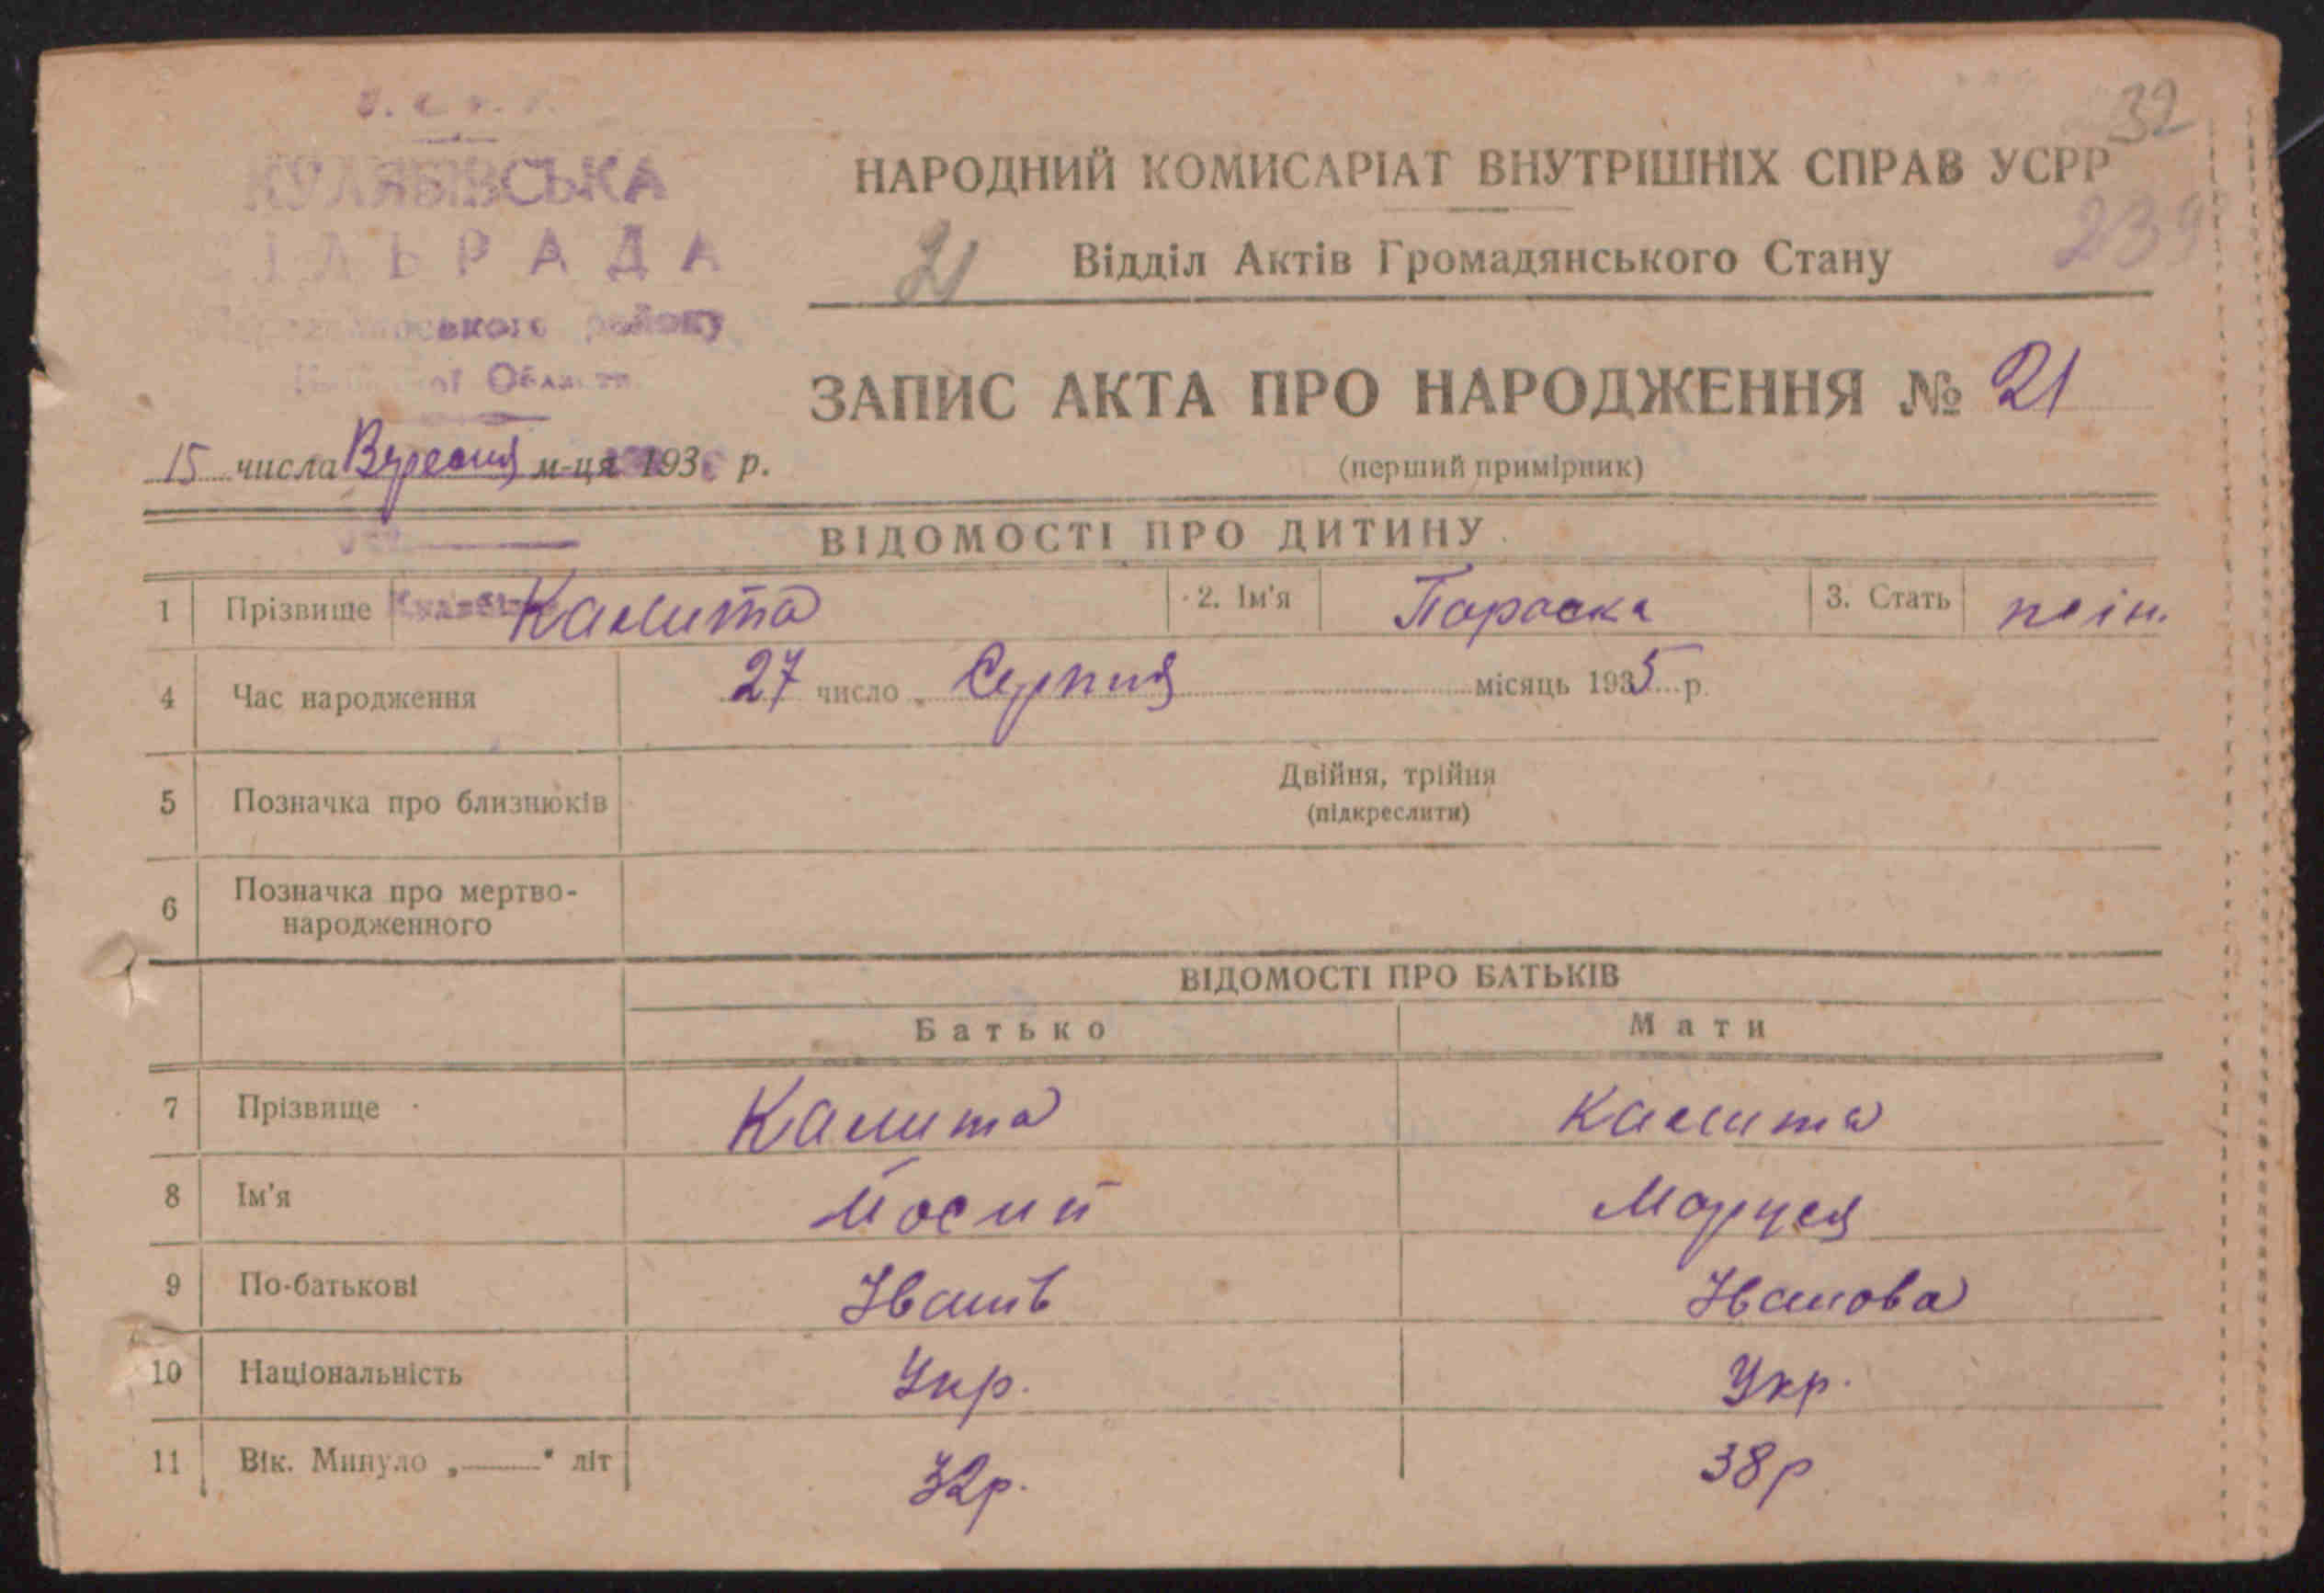 32
КУЛЯБІВСЬКА
ІЛЬРАДА
району
Області
НАРОДНИЙ КОМИСАРІАТ ВНУТРІШНІХ СПРАВ УСРР
239
21 Відділ Актів Громадянського Стану
ЗАПИС АКТА ПРО НАРОДЖЕННЯ № 21
15 числа Вересня м-ця 193 р.
(перший примірник)
ВІДОМОСТІ ПРО ДИТИНУ
1 Прізвище Калита 2. Ім'я Параска 3. Стать жін.
4 Час народження 27 число Серпня місяць 1935 р.
5 Позначка про близнюків Двійня, трійня
(підкреслити)
6 Позначка про мертво-
народженного
ВІДОМОСТІ ПРО БАТЬКІВ
Батько Мати
7 Прізвище Калита Калита
8 Ім'я Йосип Маруся
9 По-батькові Іванів Іванова
10 Національність Укр. Укр.
11 Вік. Минуло „——" літ 32р. 38р